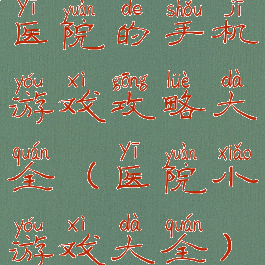 yī yuàn de shǒu jī
医院的手机
yóu xì gōng lüè dà
游戏攻略大
quán yī yuàn xiǎo
全（医院小
yóu xì dà quán
游戏大全）